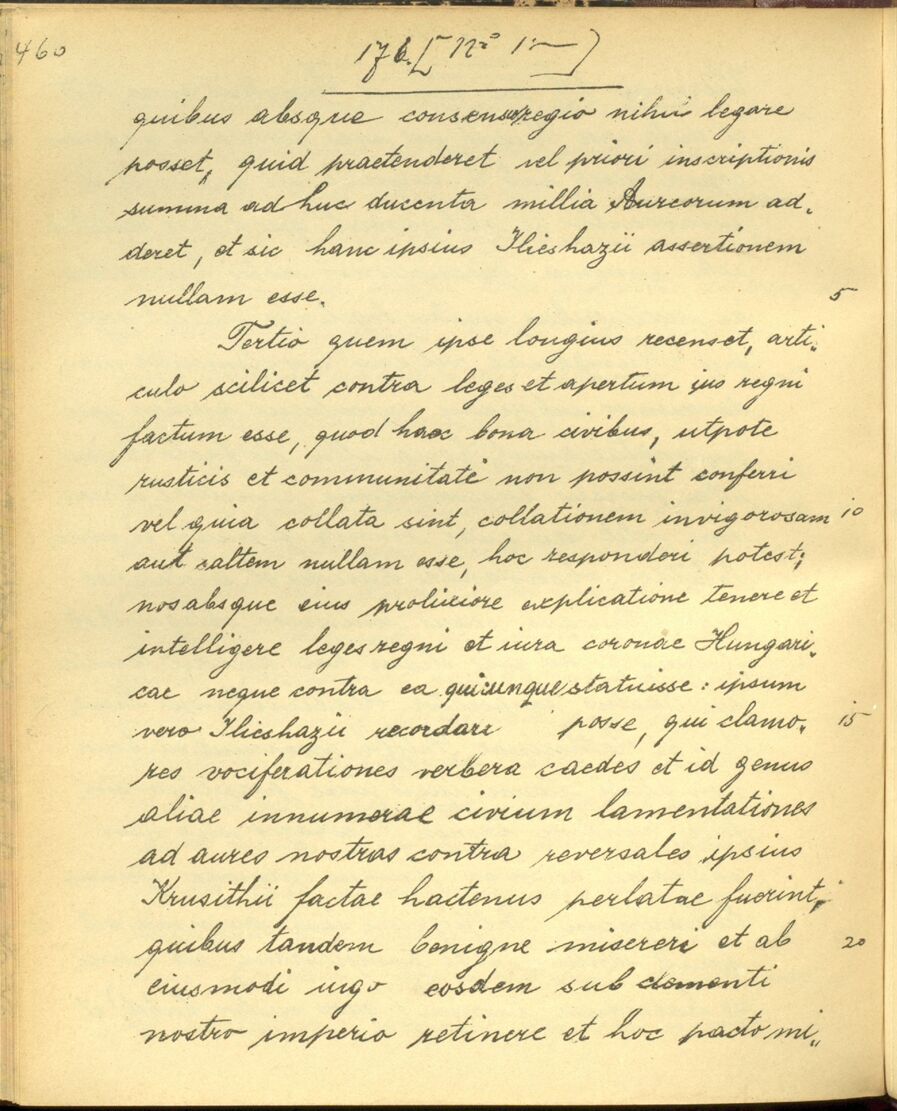 460
176. [Nro 1
quibus absque consensu regio nihil legare
posset, quid praetenderet vel priori inscriptionis
summa ad huc ducenta millia Aureorum ad„
deret, et sic hanc ipsius Ilieshazii assertionem
nullam esse.
5
Tertio quem ipse longius recenset, arti„
culo scilicet contra leges et apertum ius regni
factum esse, quod haec bona civibus, utpote
rusticis et communitati non possint conferri
vel quia collata sint, collationem invigorosam
10
aut saltem nullam esse, hoc responderi potest;
nos absque eius prolixiore explicatione tenere et
intelligere leges regni et iura coronae Hungari„
cae neque contra ea quicunque statuisse: ipsum
vero Ilieshazii recordari posse, qui clamo„
15
res vociferationes verbera caedes et id genus
aliae innumerae civium lamentationes
ad aures nostras contra reversales ipsius
Krusithii factae hactenus perlatae fuerint,
quibus tandem benigne misereri et ab
20
eiusmodi iugo eosdem sub clementi
nostro imperio retinere et hoc pacto mi„